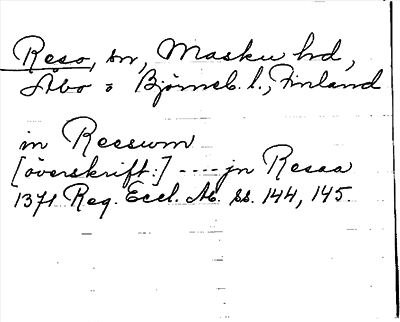 Reso, sn, Masku hd,
Åbo o Björneb. l., Finland
in Ressum
[överskrift:] ---- jn Resaa
1371 Reg. Eccl. Ab. ss. 144, 145.